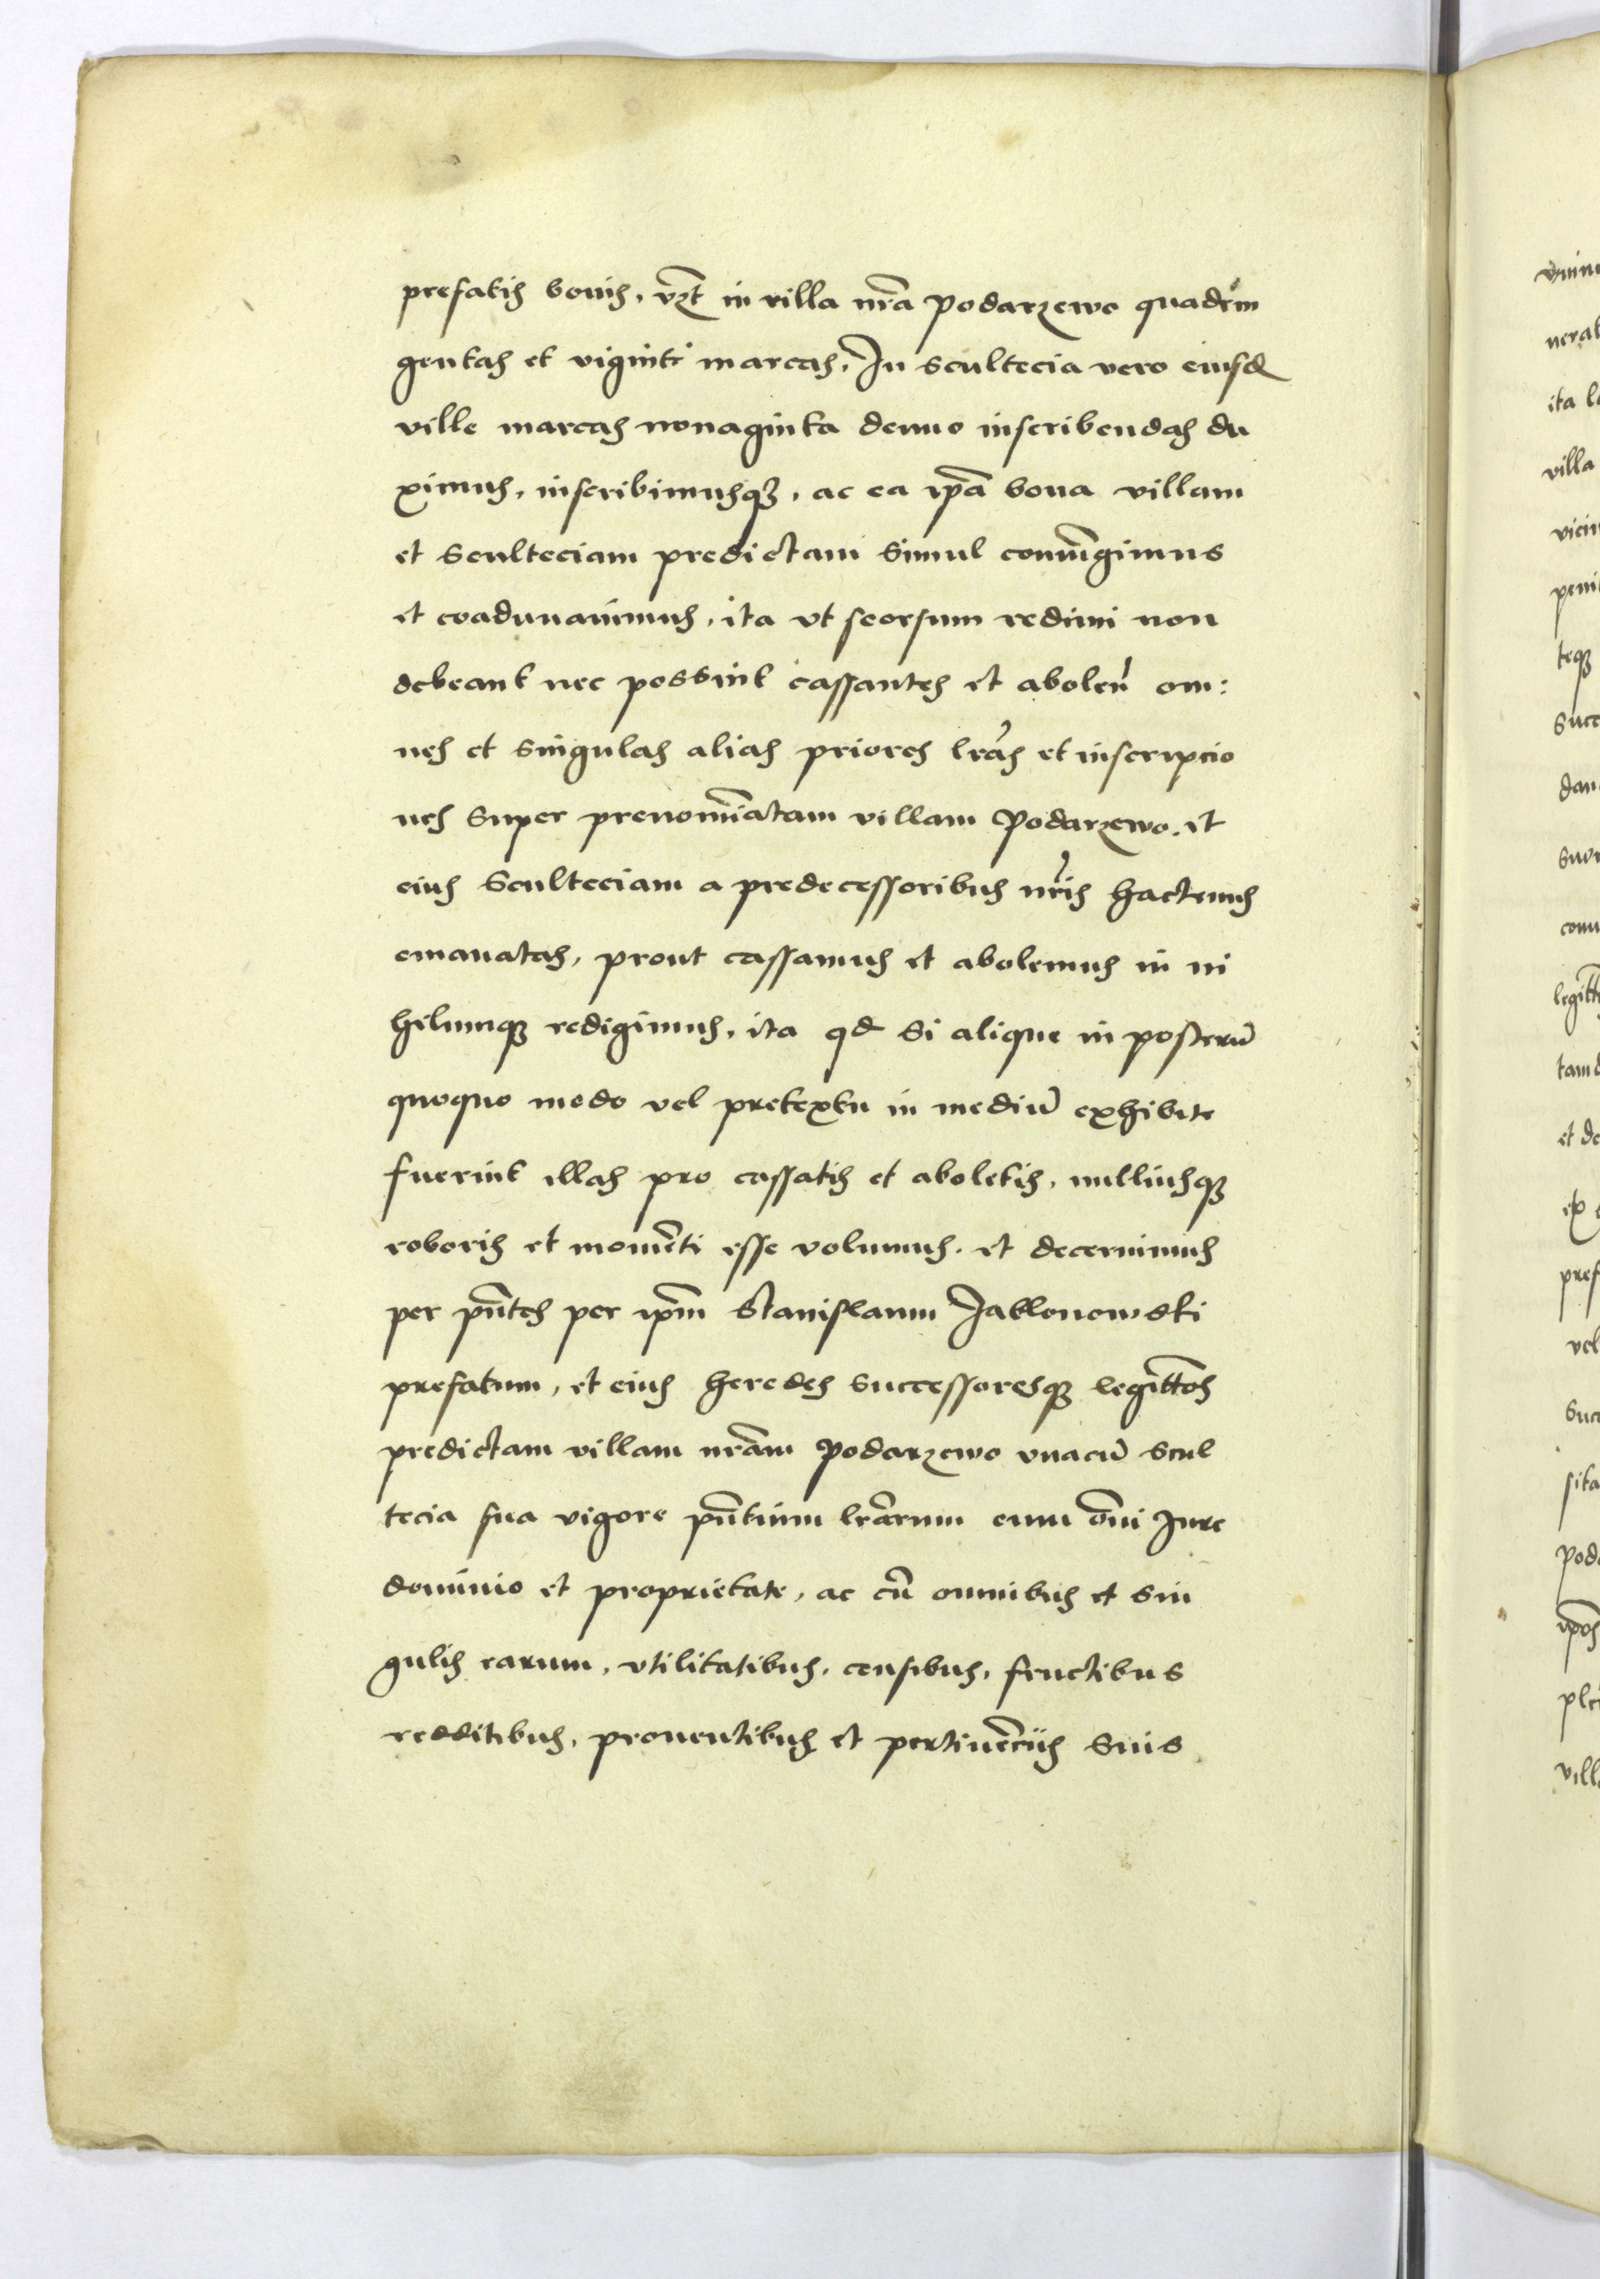 prefatis bonis, vz̃t in villa nr̃a Podarzewo quadrin
gentas et viginti marcas, In scultecia vero eiusd
ville marcas nonaginta denuo inscribendas du
ximus, inscribimusqꝫ, ac ea ip̃a bona villam
et Sculteciam predictam simul coniũgimus
et coadunauimus, ita vt seorsum redimi non
debeant nec possint cassantes et abolen̄ om:
nes et singulas alias priores lr̃as et inscripcio
nes super prenomĩatam villam Podarzewo. et
eius Sculteciam a predecessoribus nr̃is hactenus
emanatas, prout cassamus et abolemus in ni
hilumqꝫ redigimus, ita qd si alique in posterũ
quoquo modo vel pretextu in mediũ exhibite
fuerint illas pro cassatis et aboletis, nulliusqꝫ
roboris et momẽti esse volumus. et decernimus
per pñtes per ip̃m Stanislaum Jablonowski
prefatum, et eius heredes successoresqꝫ legitt̃os
predictam villam nr̃am Podarzewo vnacũ scul
tecia sua vigore pñtium lr̃arum cum õni Jure
dominio et proprietate, ac cũ omnibus et sin
gulis earum, vtilitatibus, censibus, fructibus
redditibus, prouentibus et pertinẽciis suis